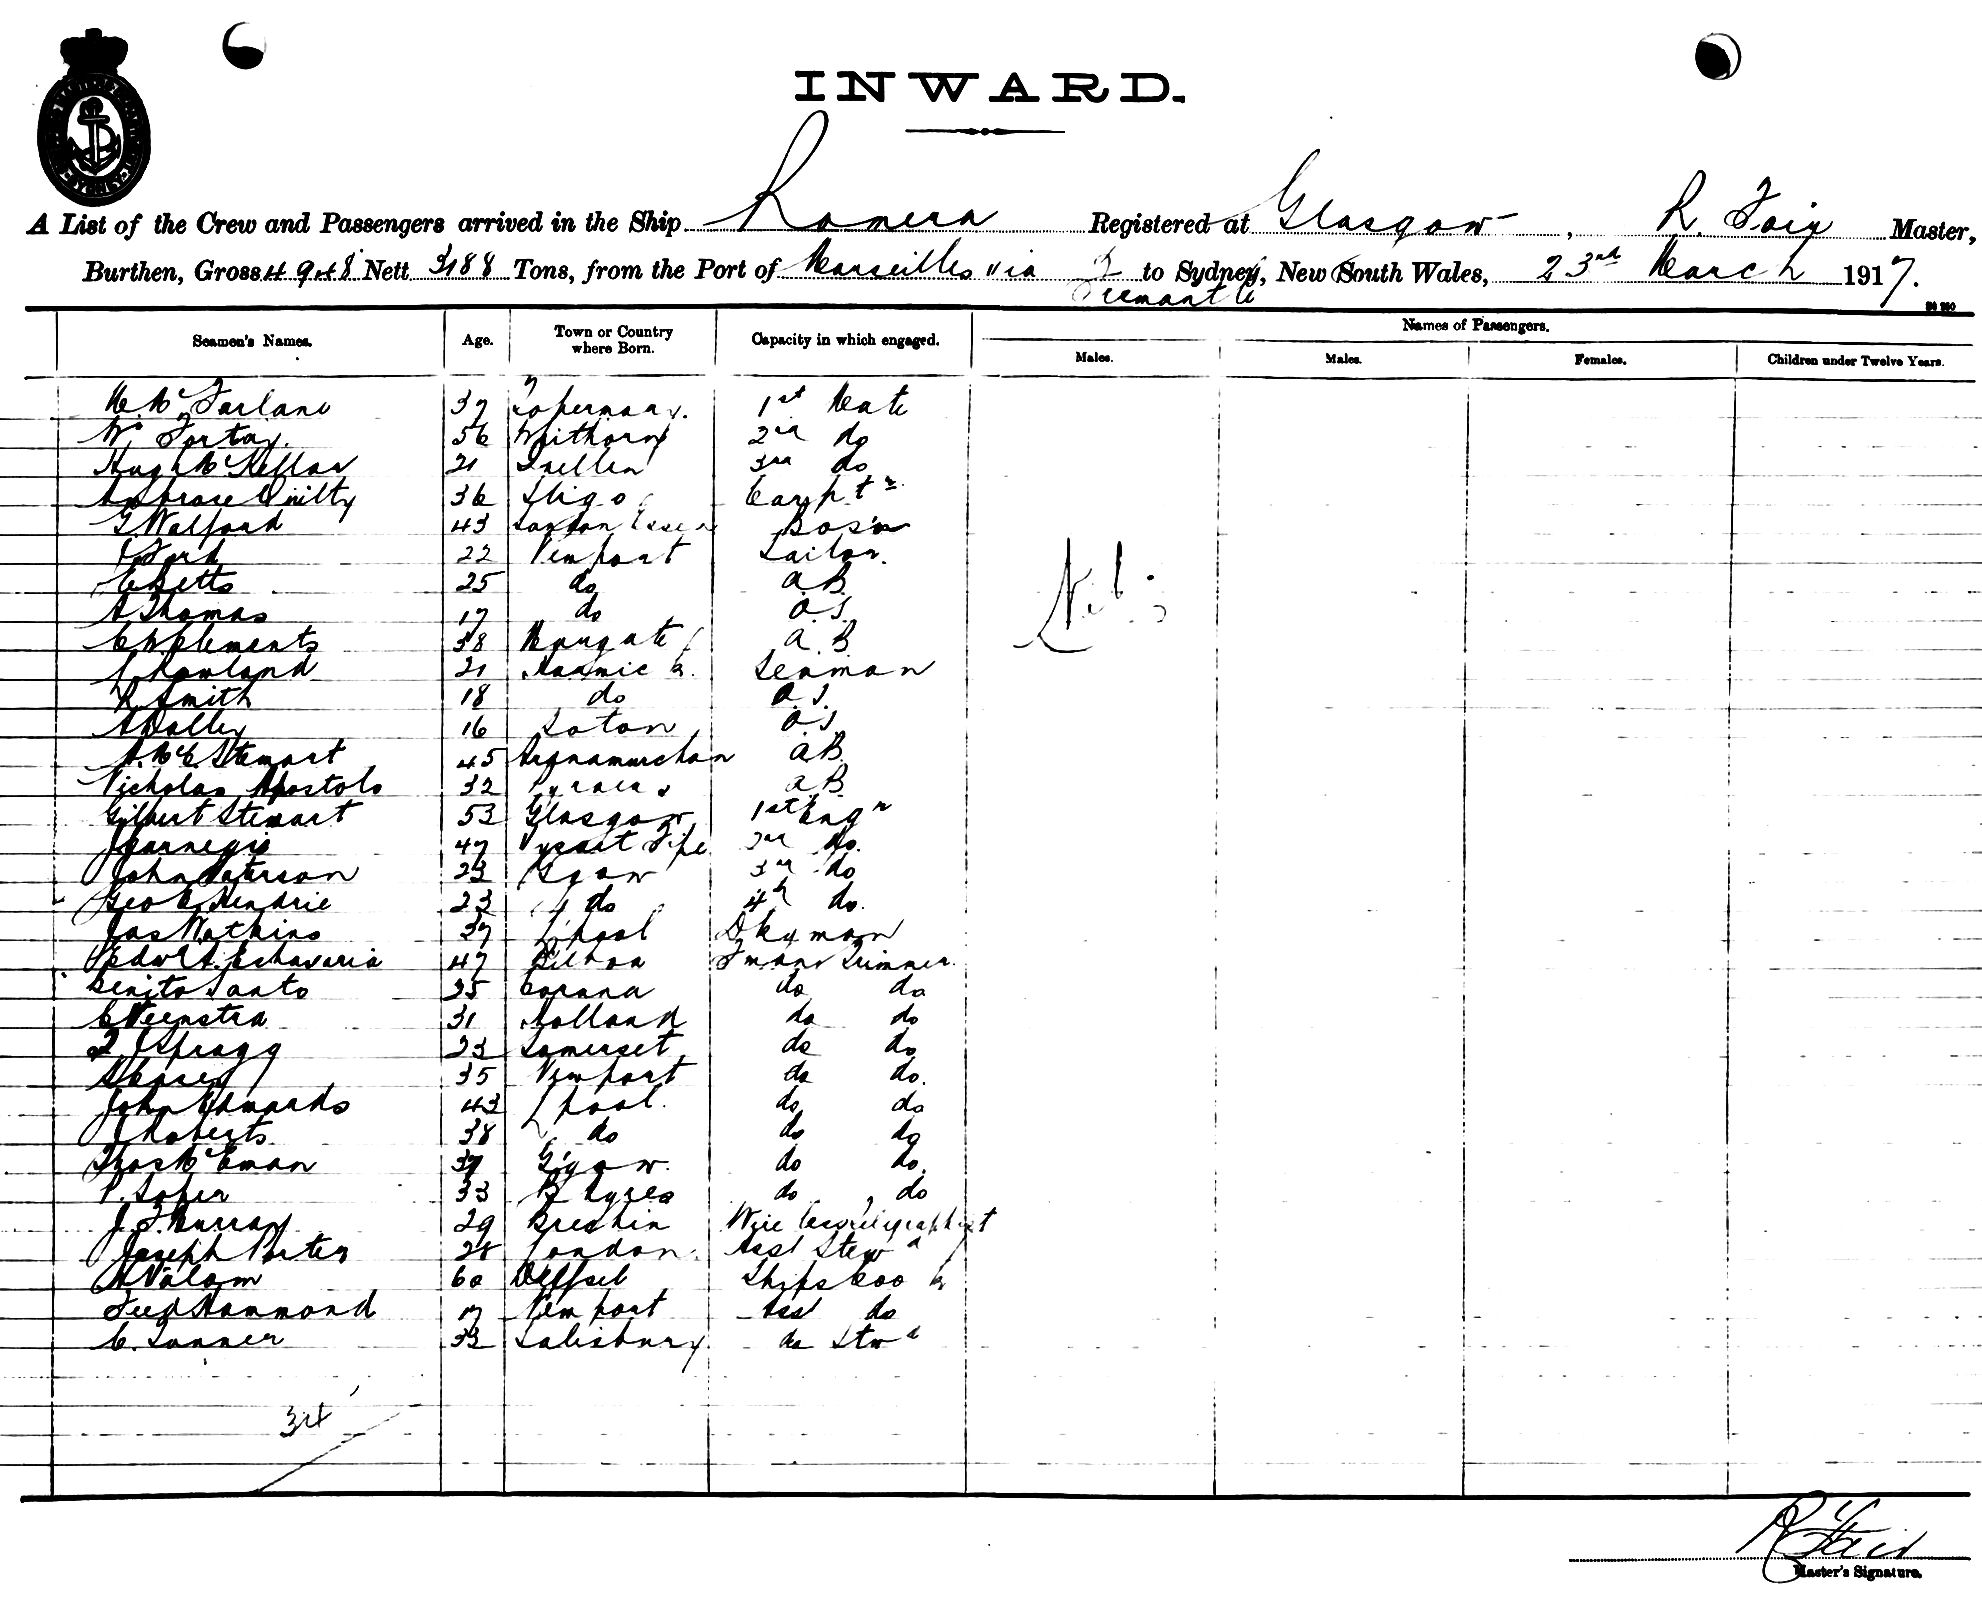 SYDNEY
INWARD.
A List of the Crew and Passengers arrived in the Ship Romera Registered at Glasgow, R. Fair Master,
Burthen, Gross 4948 Nett 3188 Tons, from the Port of Marseilles via Fremantle to Sydney, New South Wales, 23rd March 1917.
Seamen's Names. Age. Town or Country where Born. Capacity in which engaged. Names of Passengers.
Males. Males. Females. Children under Twelve Years.
McFarlane 37 Tobermory. 1st Mate
Wm 56 Whithorn 2nd do
Hugh McKellar 21 3rd do
Ambrose Quilty 36 Sligo Carptr
G. Walford 43 Bos'n
York 22 Newport Sailor.
C Betts 25 do A.B.
A Thomas 17 do O.S.
C W Clements 38 Margate A.B.
J Rowland 21 Seaman
R Smith 18 do O.S.
A Dolley 16 Soton O.S.
A. McC Stewart 45 Ardnamurchan A.B.
Nicholas Apostolo 32 A.B.
Gilbert Stewart 53 Glasgow 1st Engr
J Carnegie 47 Fife 2nd do.
John Paterson 23 Ggow 3rd do
Geo C Hendrie 23 do 4th do.
Jas Watkins 37 L'pool Dkyman
Echavaria 47 Bilboa Fman Trimmer
Benito Santo 25 Coruna do do
C Veenstra 31 Holland do do
Spragg 23 Somerset do do
35 Newport do do.
John Edwards 43 L'pool. do do
J Roberts 38 do do do
Thos McEwan 37 G'gow. do do.
P. Soper 33 B Ayres do do
J. F. Murray 29 Brechin telegraphist
Joseph Porter 28 London. Asst Stewd
60 Ships Cook
Fred Hammond 17 Newport Asst do
C. Tanner 33 Salisbury do Stwd
Nil
34
R Fair
Master's Signature.